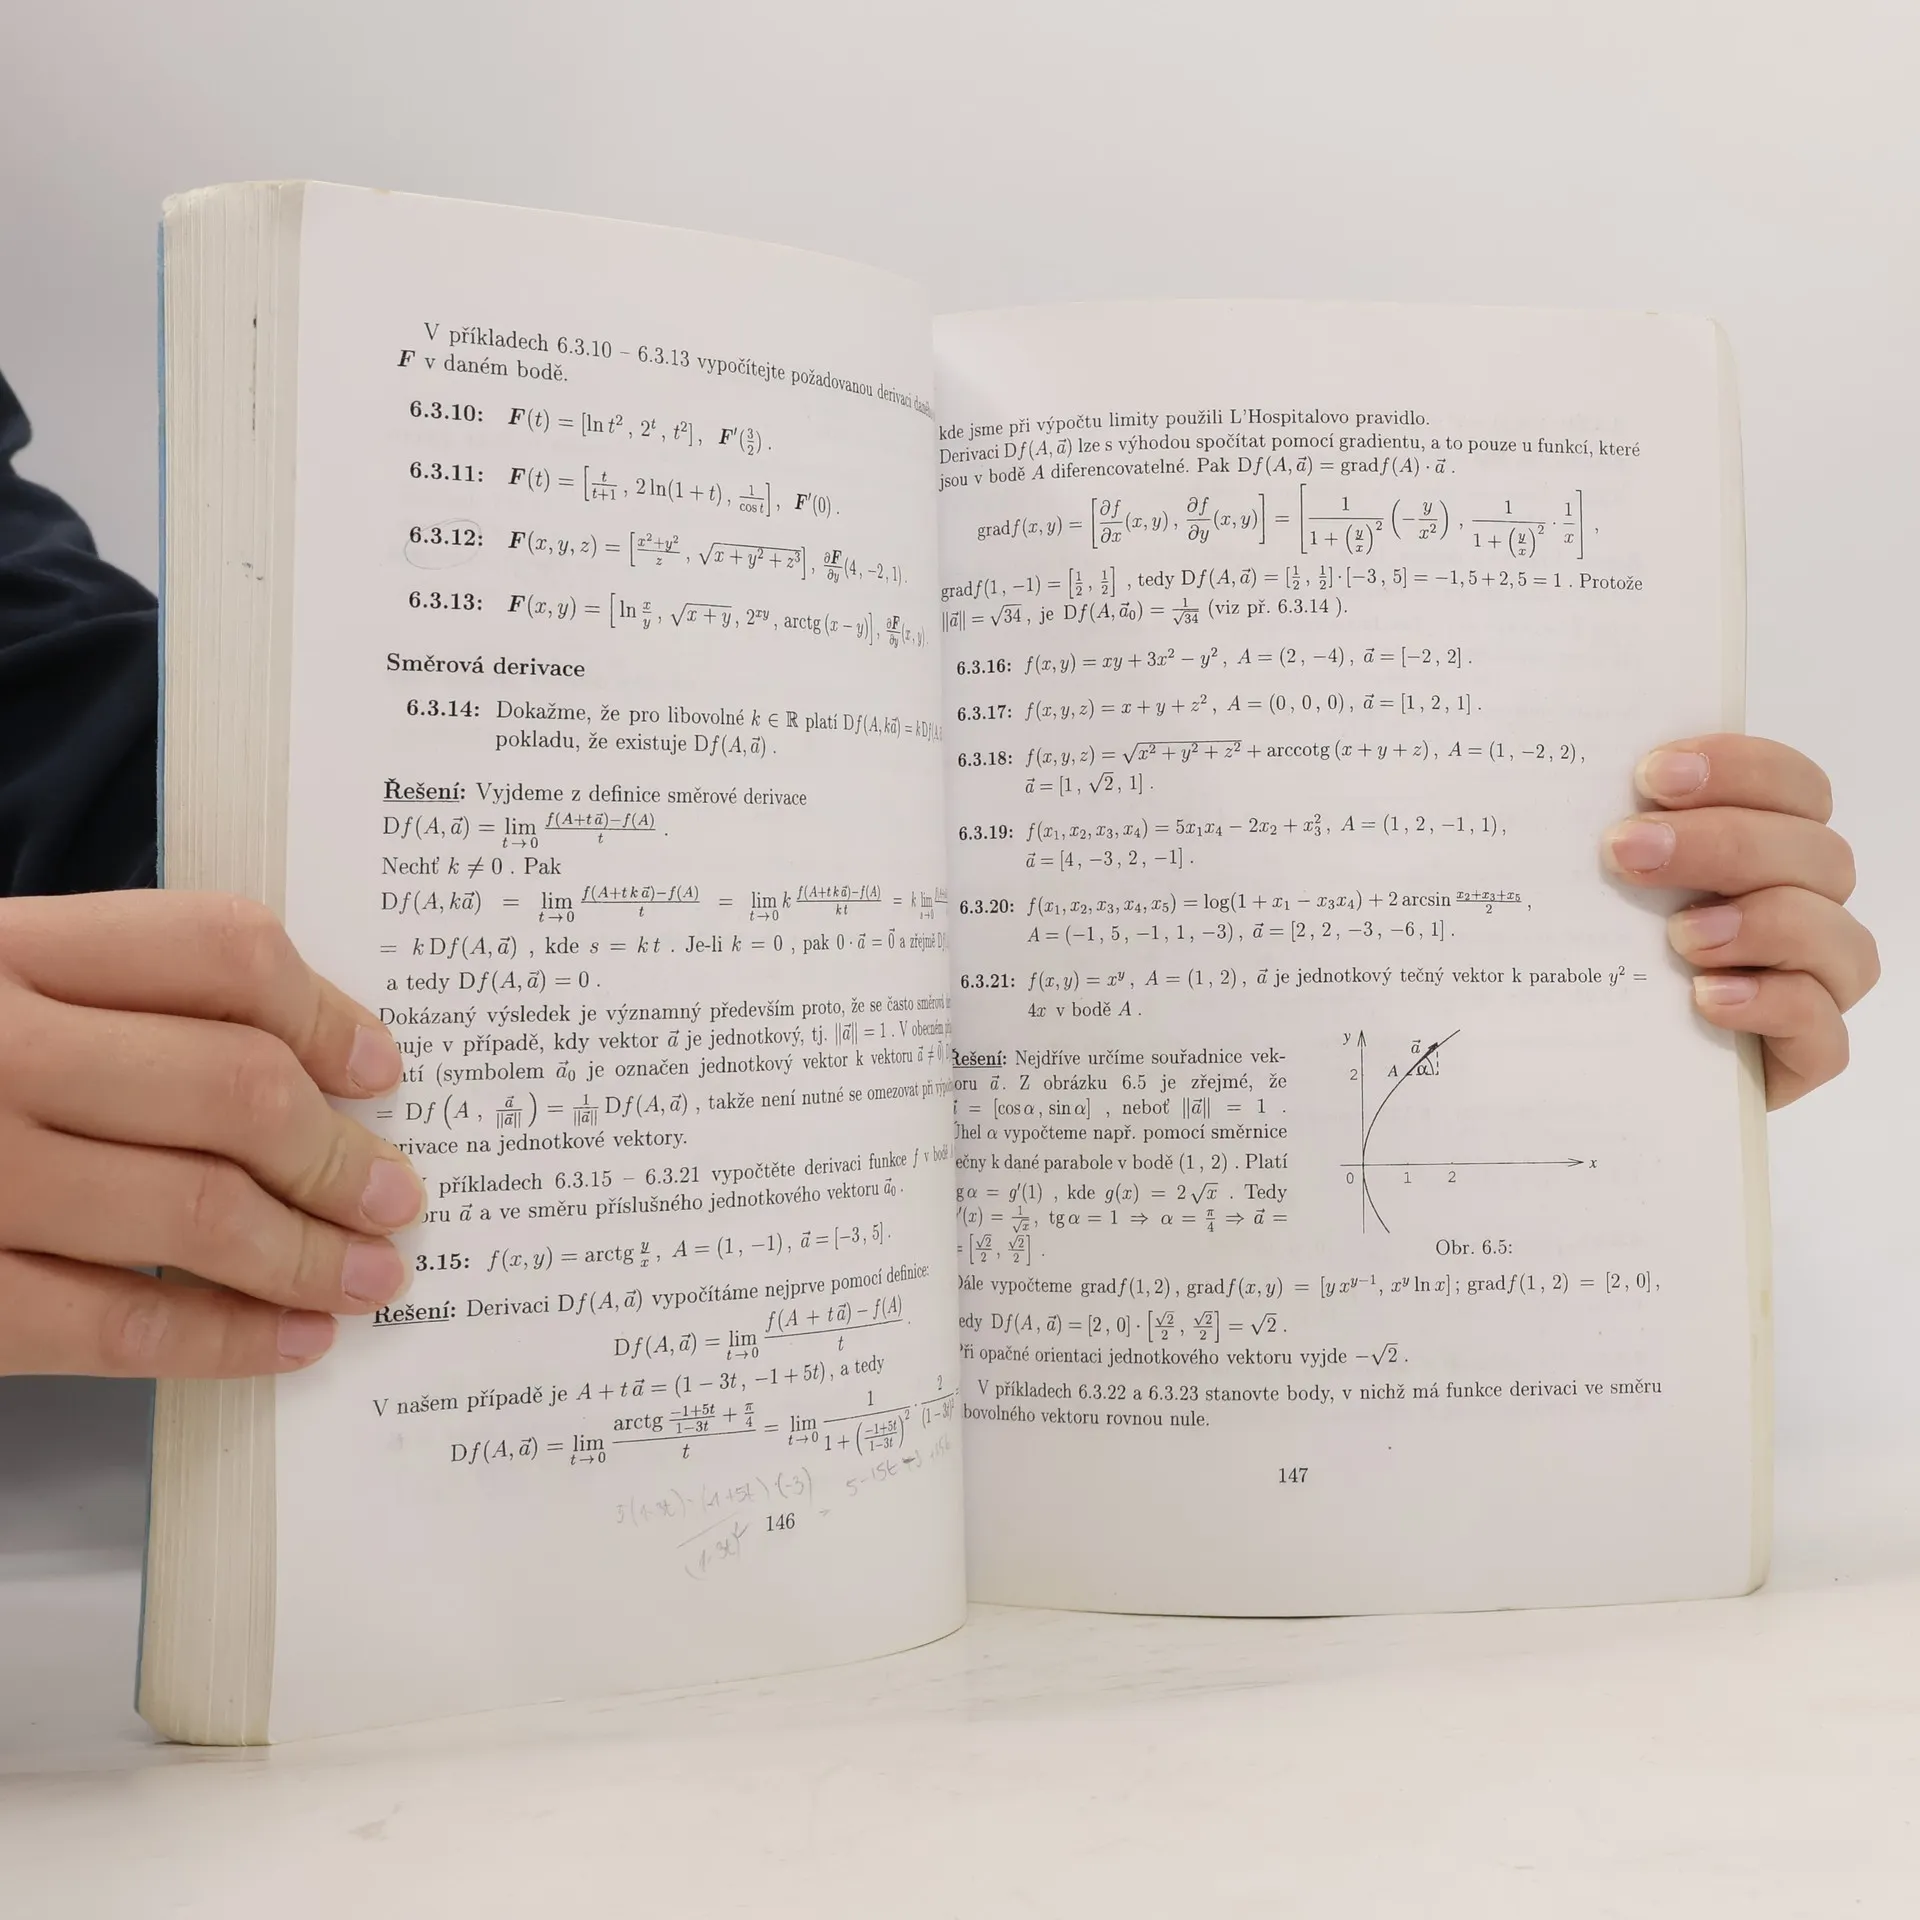 V příkladech 6.3.10 – 6.3.13 vypočítejte požadovanou derivaci
F v daném bodě.
6.3.10: F(t) = [ln t², 2ᵗ, t²], F′(3/2).
6.3.11: F(t) = [t/(t+1), 2 ln(1+t), 1/cos t], F′(0).
6.3.12: F(x, y, z) = [(x²+y²)/z, √(x + y² + z³)], ∂F/∂y(4, −2, 1).
6.3.13: F(x, y) = [ln x/y, √(x + y), 2ˣʸ, arctg (x − y)], ∂F/∂y(x, y).
Směrová derivace
6.3.14: Dokažme, že pro libovolné k ∈ ℝ platí Df(A, ka⃗) = k
pokladu, že existuje Df(A, a⃗).
Řešení: Vyjdeme z definice směrové derivace
Df(A, a⃗) = lim t→0 (f(A+t a⃗)−f(A))/t.
Nechť k ≠ 0. Pak
Df(A, ka⃗) = lim t→0 (f(A+t k a⃗)−f(A))/t = lim t→0 k (f(A+tk a⃗)−f(A))/(k t) = k lim s→0
= k Df(A, a⃗), kde s = k t. Je-li k = 0, pak 0 · a⃗ = 0⃗ a zřejmě
a tedy Df(A, a⃗) = 0.
Dokázaný výsledek je významný především proto, že se často
v případě, kdy vektor a⃗ je jednotkový, tj. ||a⃗|| = 1. V obecném
(symbolem a⃗₀ je označen jednotkový vektor k vektoru a⃗ ≠ 0⃗)
= Df (A, a⃗/||a⃗||) = 1/||a⃗|| Df(A, a⃗), takže není nutné se omezovat při
na jednotkové vektory.
příkladech 6.3.15 – 6.3.21 vypočtěte derivaci funkce f v bodě
a⃗ a ve směru příslušného jednotkového vektoru a⃗₀.
3.15: f(x, y) = arctg y/x, A = (1, −1), a⃗ = [−3, 5].
Řešení: Derivaci Df(A, a⃗) vypočítáme nejprve pomocí definice:
Df(A, a⃗) = lim t→0 (f(A + t a⃗) − f(A))/t.
V našem případě je A + t a⃗ = (1 − 3t, −1 + 5t), a tedy
Df(A, a⃗) = lim t→0 (arctg (−1+5t)/(1−3t) + π/4)/t = lim t→0 1/(1 + ((−1+5t)/(1−3t))²) · 2/(1−3t)²
146
kde jsme při výpočtu limity použili L'Hospitalovo pravidlo.
Derivaci Df(A, a⃗) lze s výhodou spočítat pomocí gradientu, a to pouze u funkcí, které
jsou v bodě A diferencovatelné. Pak Df(A, a⃗) = gradf(A) · a⃗.
gradf(x, y) = [∂f/∂x(x, y), ∂f/∂y(x, y)] = [1/(1 + (y/x)²) (−y/x²), 1/(1 + (y/x)²) · 1/x],
gradf(1, −1) = [1/2, 1/2], tedy Df(A, a⃗) = [1/2, 1/2] · [−3, 5] = −1,5 + 2,5 = 1. Protože
||a⃗|| = √34, je Df(A, a⃗₀) = 1/√34 (viz př. 6.3.14 ).
6.3.16: f(x, y) = xy + 3x² − y², A = (2, −4), a⃗ = [−2, 2].
6.3.17: f(x, y, z) = x + y + z², A = (0, 0, 0), a⃗ = [1, 2, 1].
6.3.18: f(x, y, z) = √(x² + y² + z²) + arccotg (x + y + z), A = (1, −2, 2),
a⃗ = [1, √2, 1].
6.3.19: f(x₁, x₂, x₃, x₄) = 5x₁x₄ − 2x₂ + x₃², A = (1, 2, −1, 1),
a⃗ = [4, −3, 2, −1].
6.3.20: f(x₁, x₂, x₃, x₄, x₅) = log(1 + x₁ − x₃x₄) + 2 arcsin (x₂+x₃+x₅)/2,
A = (−1, 5, −1, 1, −3), a⃗ = [2, 2, −3, −6, 1].
6.3.21: f(x, y) = xʸ, A = (1, 2), a⃗ je jednotkový tečný vektor k parabole y² =
4x v bodě A.
Řešení: Nejdříve určíme souřadnice vek-
oru a⃗. Z obrázku 6.5 je zřejmé, že
= [cos α, sin α], neboť ||a⃗|| = 1.
Úhel α vypočteme např. pomocí směrnice
ečny k dané parabole v bodě (1, 2). Platí
g α = g′(1), kde g(x) = 2√x. Tedy
′(x) = 1/√x, tg α = 1 ⇒ α = π/4 ⇒ a⃗ =
= [√2/2, √2/2].
y
a⃗
2
A
α
0
1
2
x
Obr. 6.5:
Dále vypočteme gradf(1, 2), gradf(x, y) = [y xʸ⁻¹, xʸ ln x]; gradf(1, 2) = [2, 0],
edy Df(A, a⃗) = [2, 0] · [√2/2, √2/2] = √2.
Při opačné orientaci jednotkového vektoru vyjde −√2.
V příkladech 6.3.22 a 6.3.23 stanovte body, v nichž má funkce derivaci ve směru
bovolného vektoru rovnou nule.
147